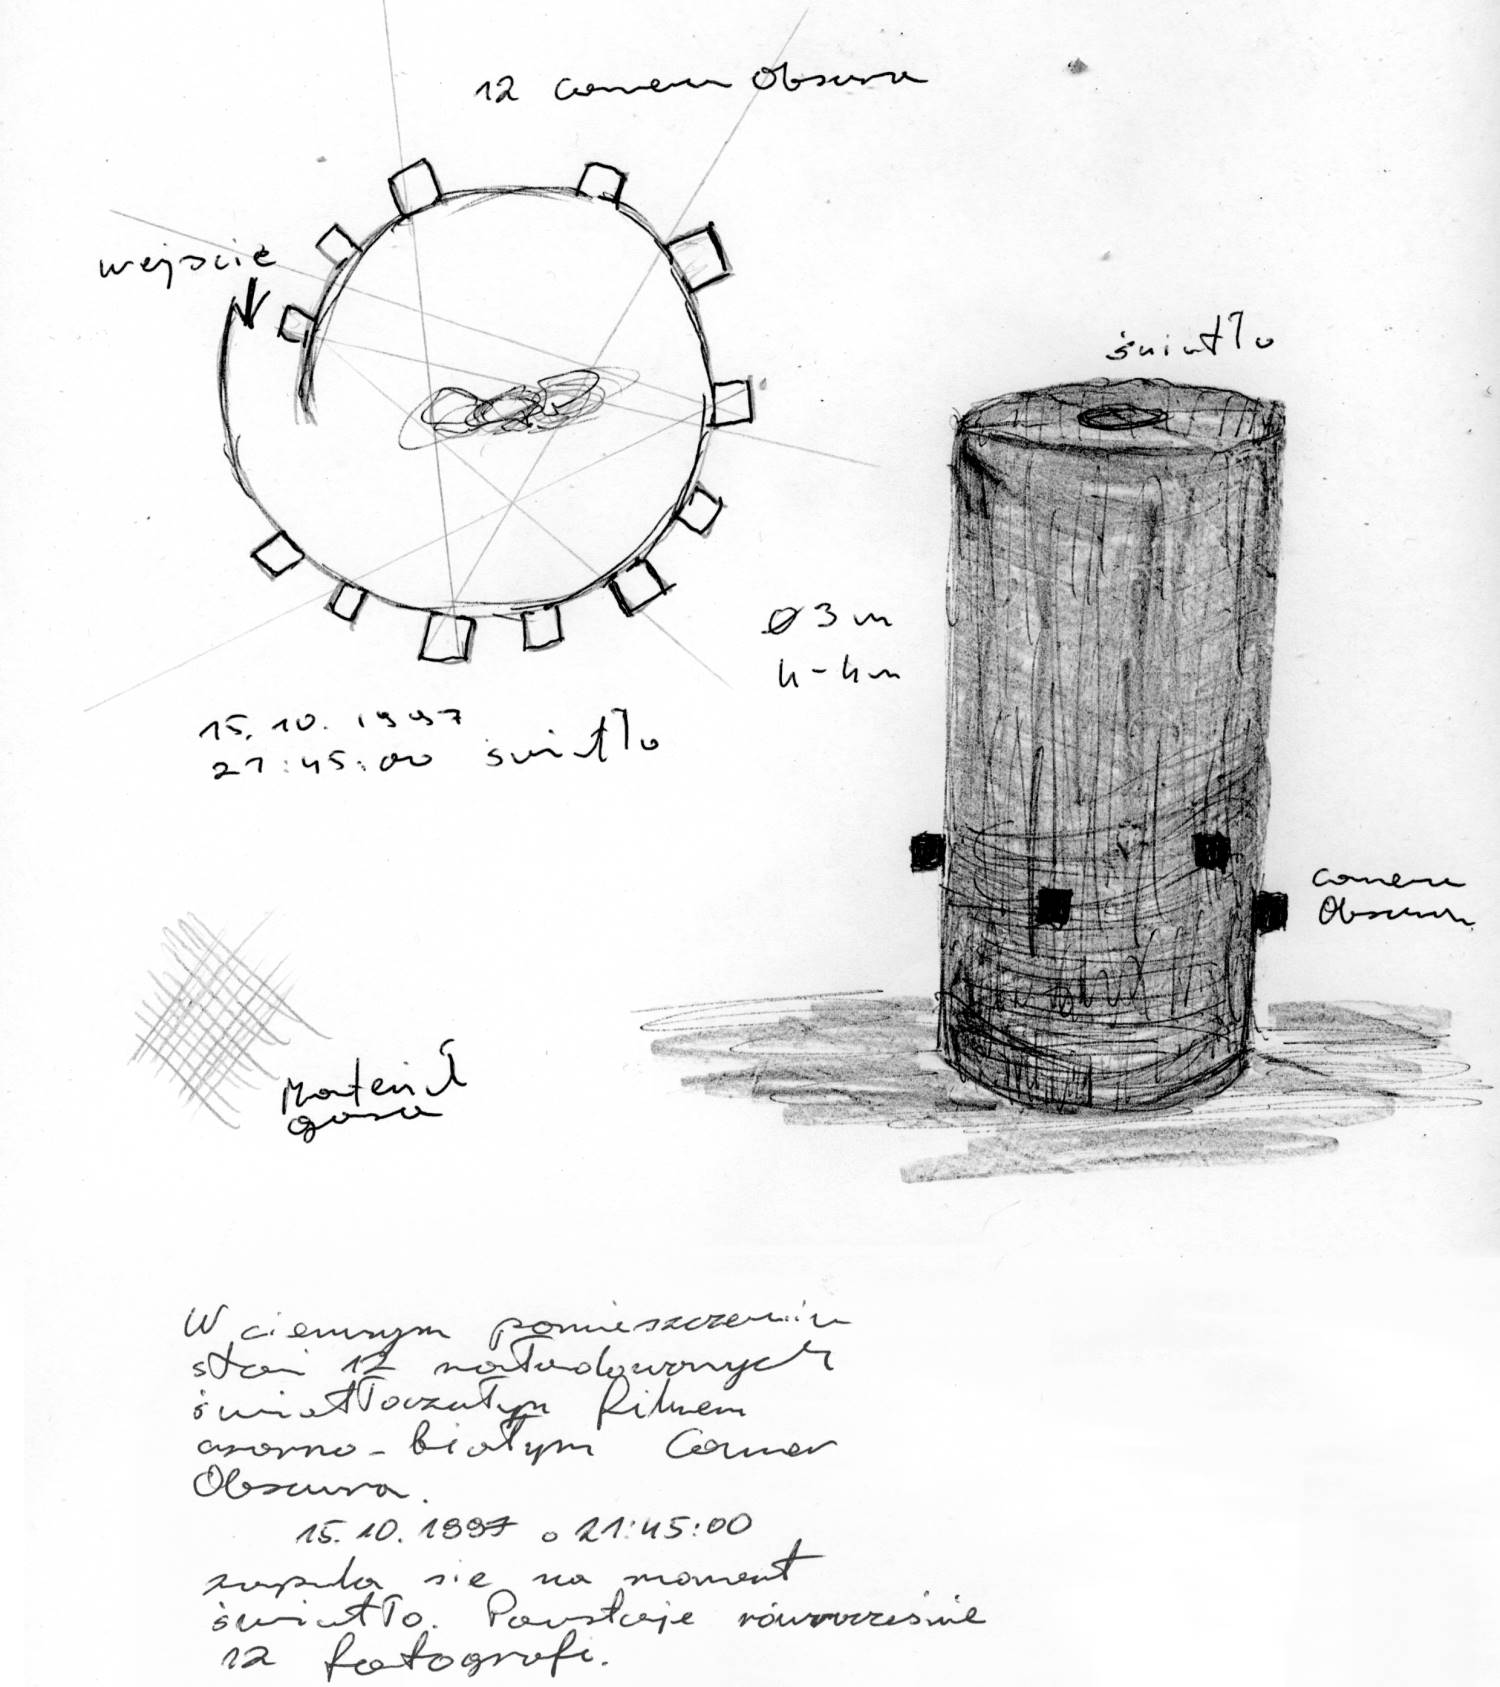 12 camera Obscura
wejście
światło
ø 3 m
h - 4 m
15.10.1997
21:45:00 światło
camera
Obscura
Materiał
gaza
W ciemnym pomieszczeniu
stoi 12 naładowanych
światłoczułym filmem
czarno-białym Camer
Obscura.
15.10.1997 o 21:45:00
zapala się na moment
światło. Powstaje równocześnie
12 fotografi.